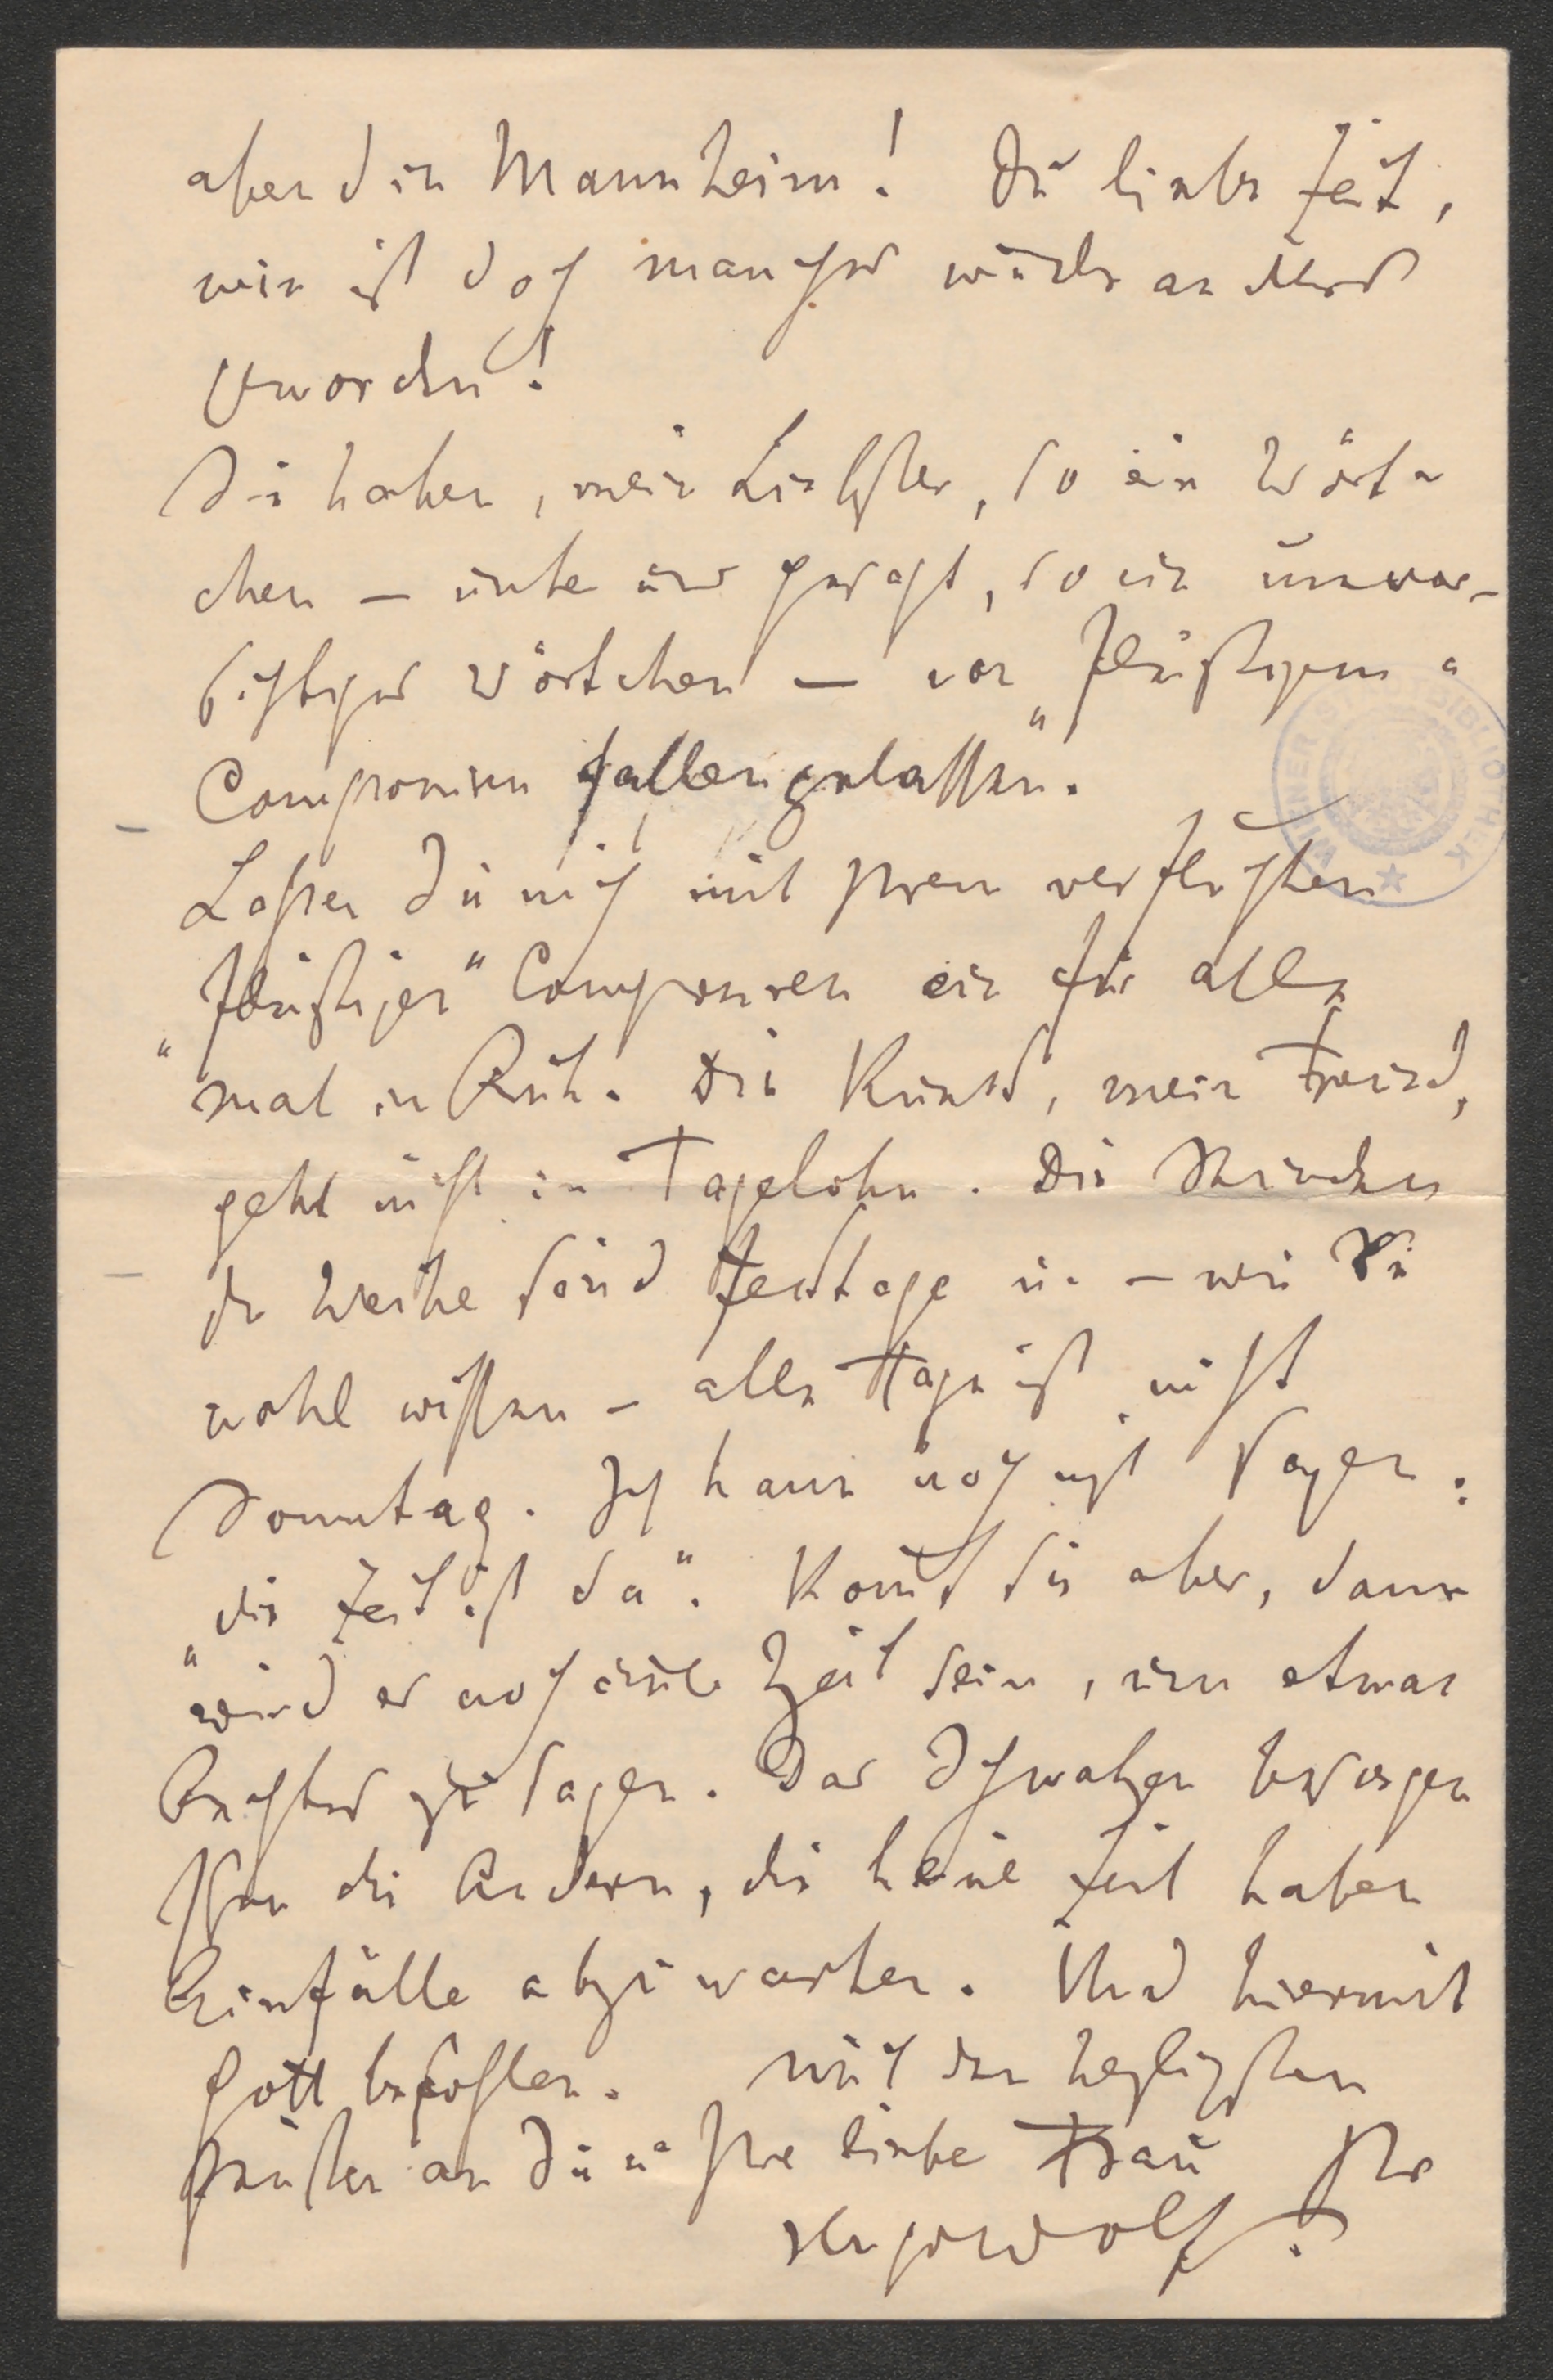 aber d in Mannheim! Du liebe Zeit,
wie ist doch manches wieder anders
geworden!
Sie haben, mein Liebster, so ein Wört-
chen – unter uns gesagt, so ein unvor-
sichtiges Wörtchen – von „fleißigem“
Componiren fallen gelassen.
Lassen Sie mich mit Ihrem verfluchten
„fleißigen“ Componiren ein für alle
mal in Ruh. Die Kunst, mein Freund,
geht nicht in Tagelohn. Die Stunden
der Weihe sind Festage u. – wie Sie
wohl wissen – alle Tage ist nicht
Sonntag. Ich kann noch nicht sagen:
„die Zeit ist da“. Kommt sie aber, dann
wird es noch immer Zeit sein, um etwas
Rechtes zu sagen. Das Schwatzen besorgen
schon die Andern, die keine Zeit haben
Einfälle abzuwarten. Und hiermit
Gott befohlen. Mit den herzlichsten
Grüßen an Sie u. Ihre liebe Frau Ihr
Hugo Wolf.
WIENER STADTBIBLIOTHEK